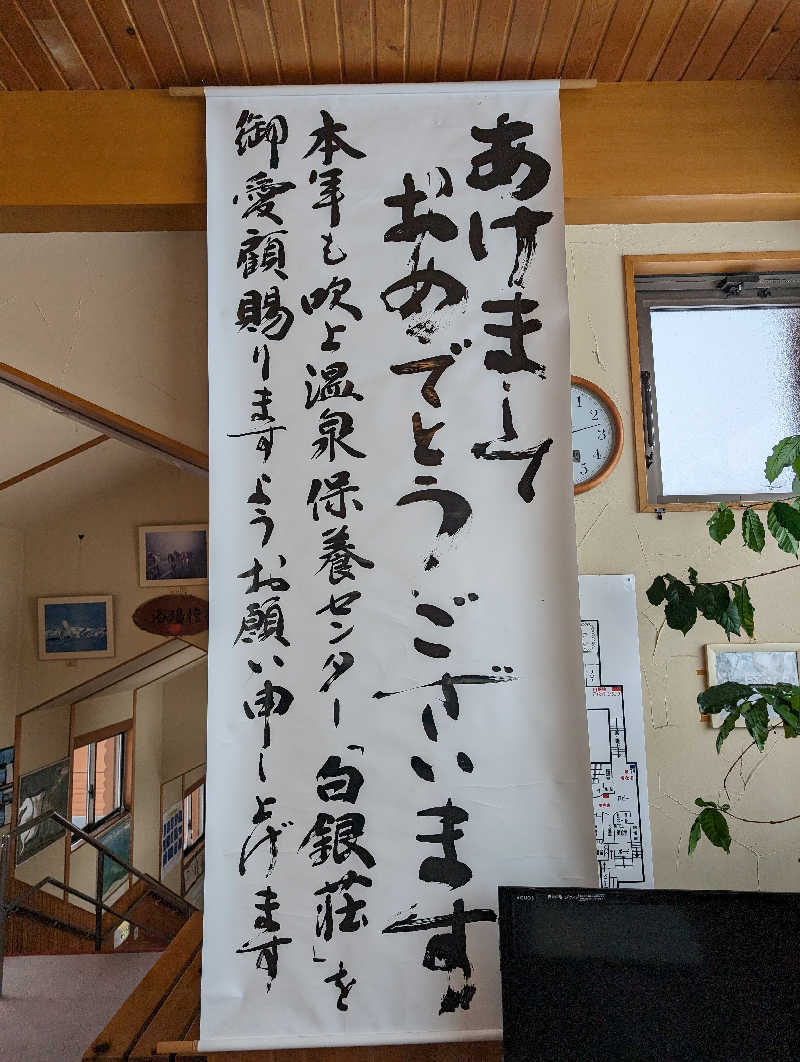 あけまして
おめでとうございます
本年も吹上温泉保養センター「白銀荘」を
御愛顧賜りますようお願い申し上げます
1
2
3
4
5